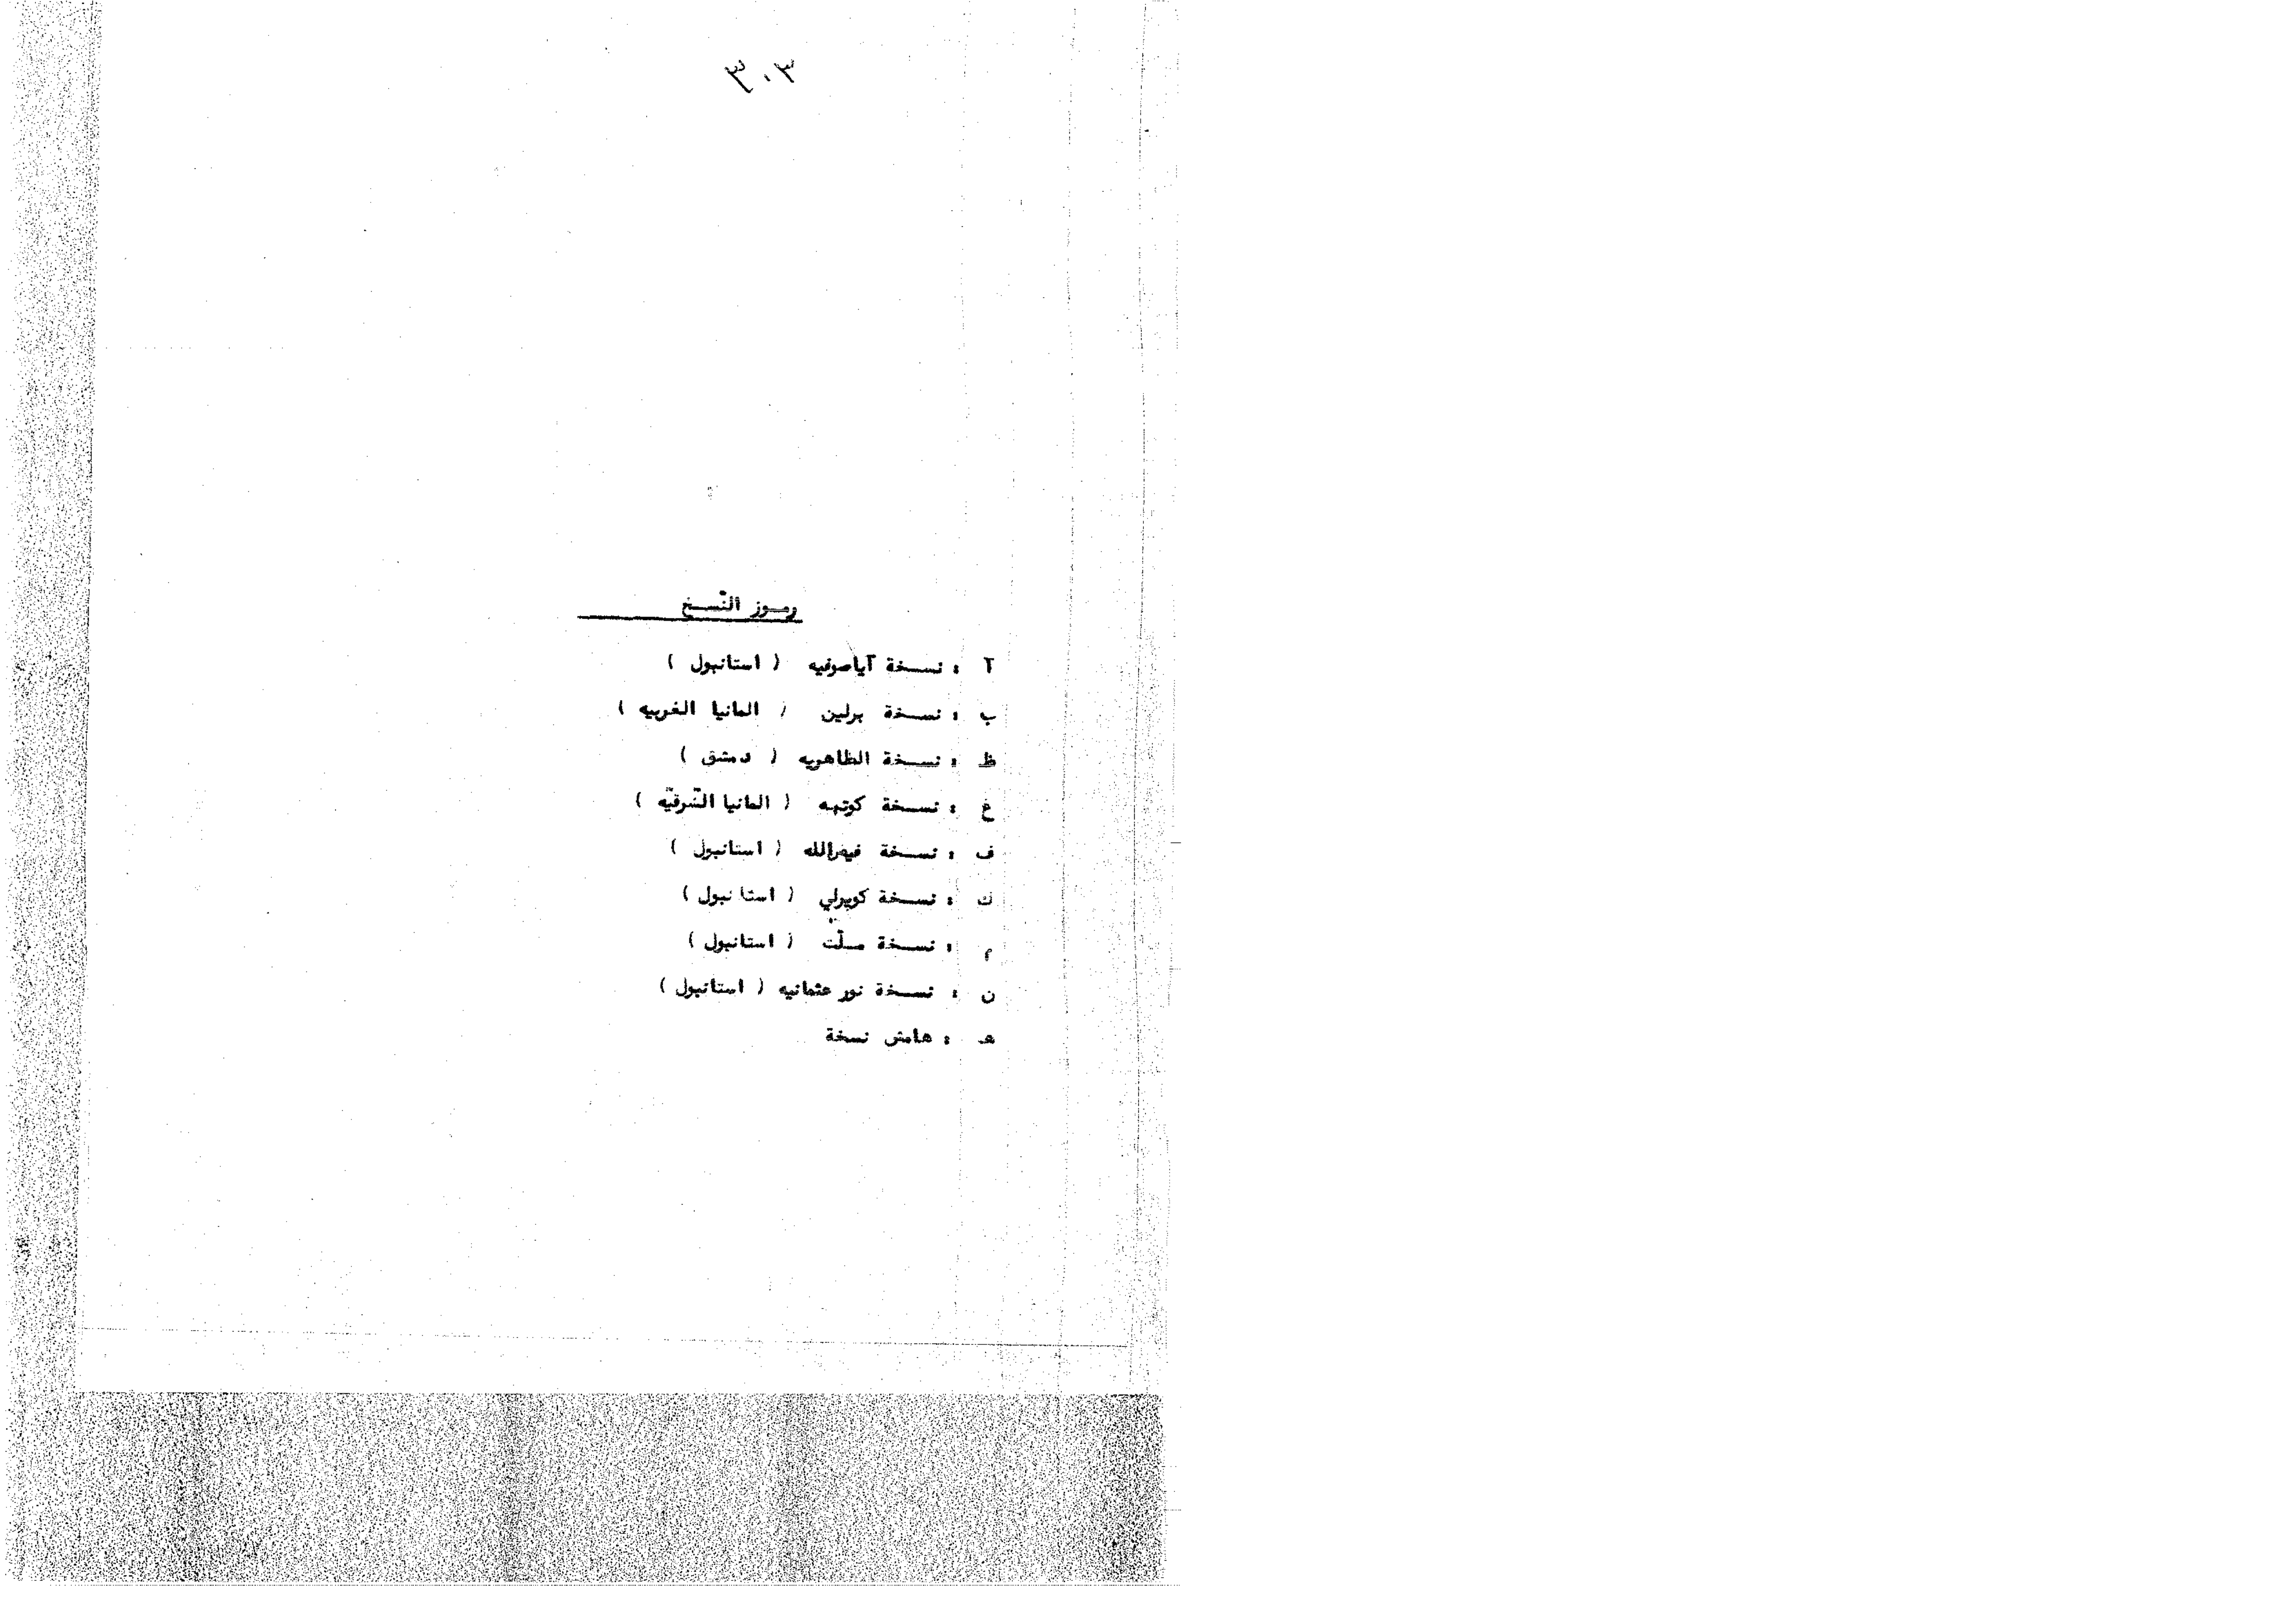 ٣٠٣
رمـوز النّسـخ
آ : نسـخة آياصوفيه ( استانبول )
ب : نسـخة برلين ( المانيا الغربيه )
ظ : نسـخة الظاهريه ( دمشق )
غ : نسـخة كوتهه ( المانيا الشّرقيّه )
ف : نسـخة فيض الله ( استانبول )
ك : نسـخة كوپرلي ( استانبول )
م : نسـخة ملّت ( استانبول )
ن : نسـخة نور عثمانيه ( استانبول )
هـ : هامش نسخة